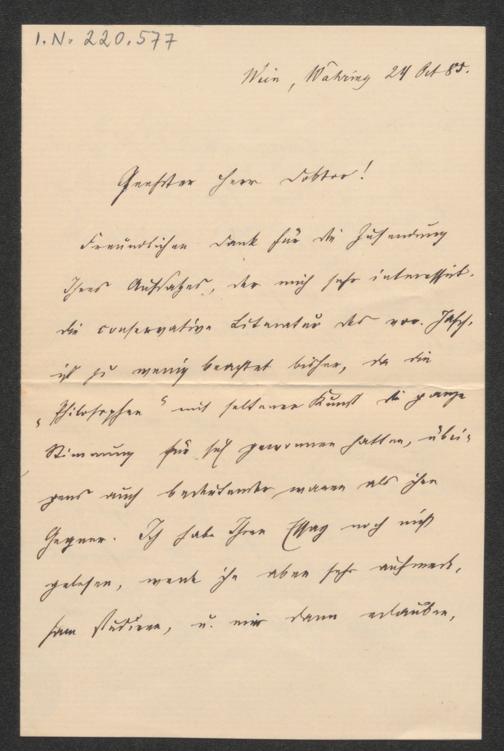 I. N. 220.577
Wien, Währing 24 Oct 85.
Geehrter Herr Doktor!
Freundlichen Dank für die Zusendung
Ihres Aufsatzes, der mich sehr interessirt.
die conservative Literatur des vor. Jahrh.
ist zu wenig beachtet bisher, da die
„Philosophen" mit seltener Kunst die ganze
Stimmung für sich gewonnen hatten, übri-
gens auch bedeutender waren als ihre
Gegner. Ich habe Ihren Essay noch nicht
gelesen, werde ihn aber sehr aufmerk-
sam studiren, u. mir dann erlauben,